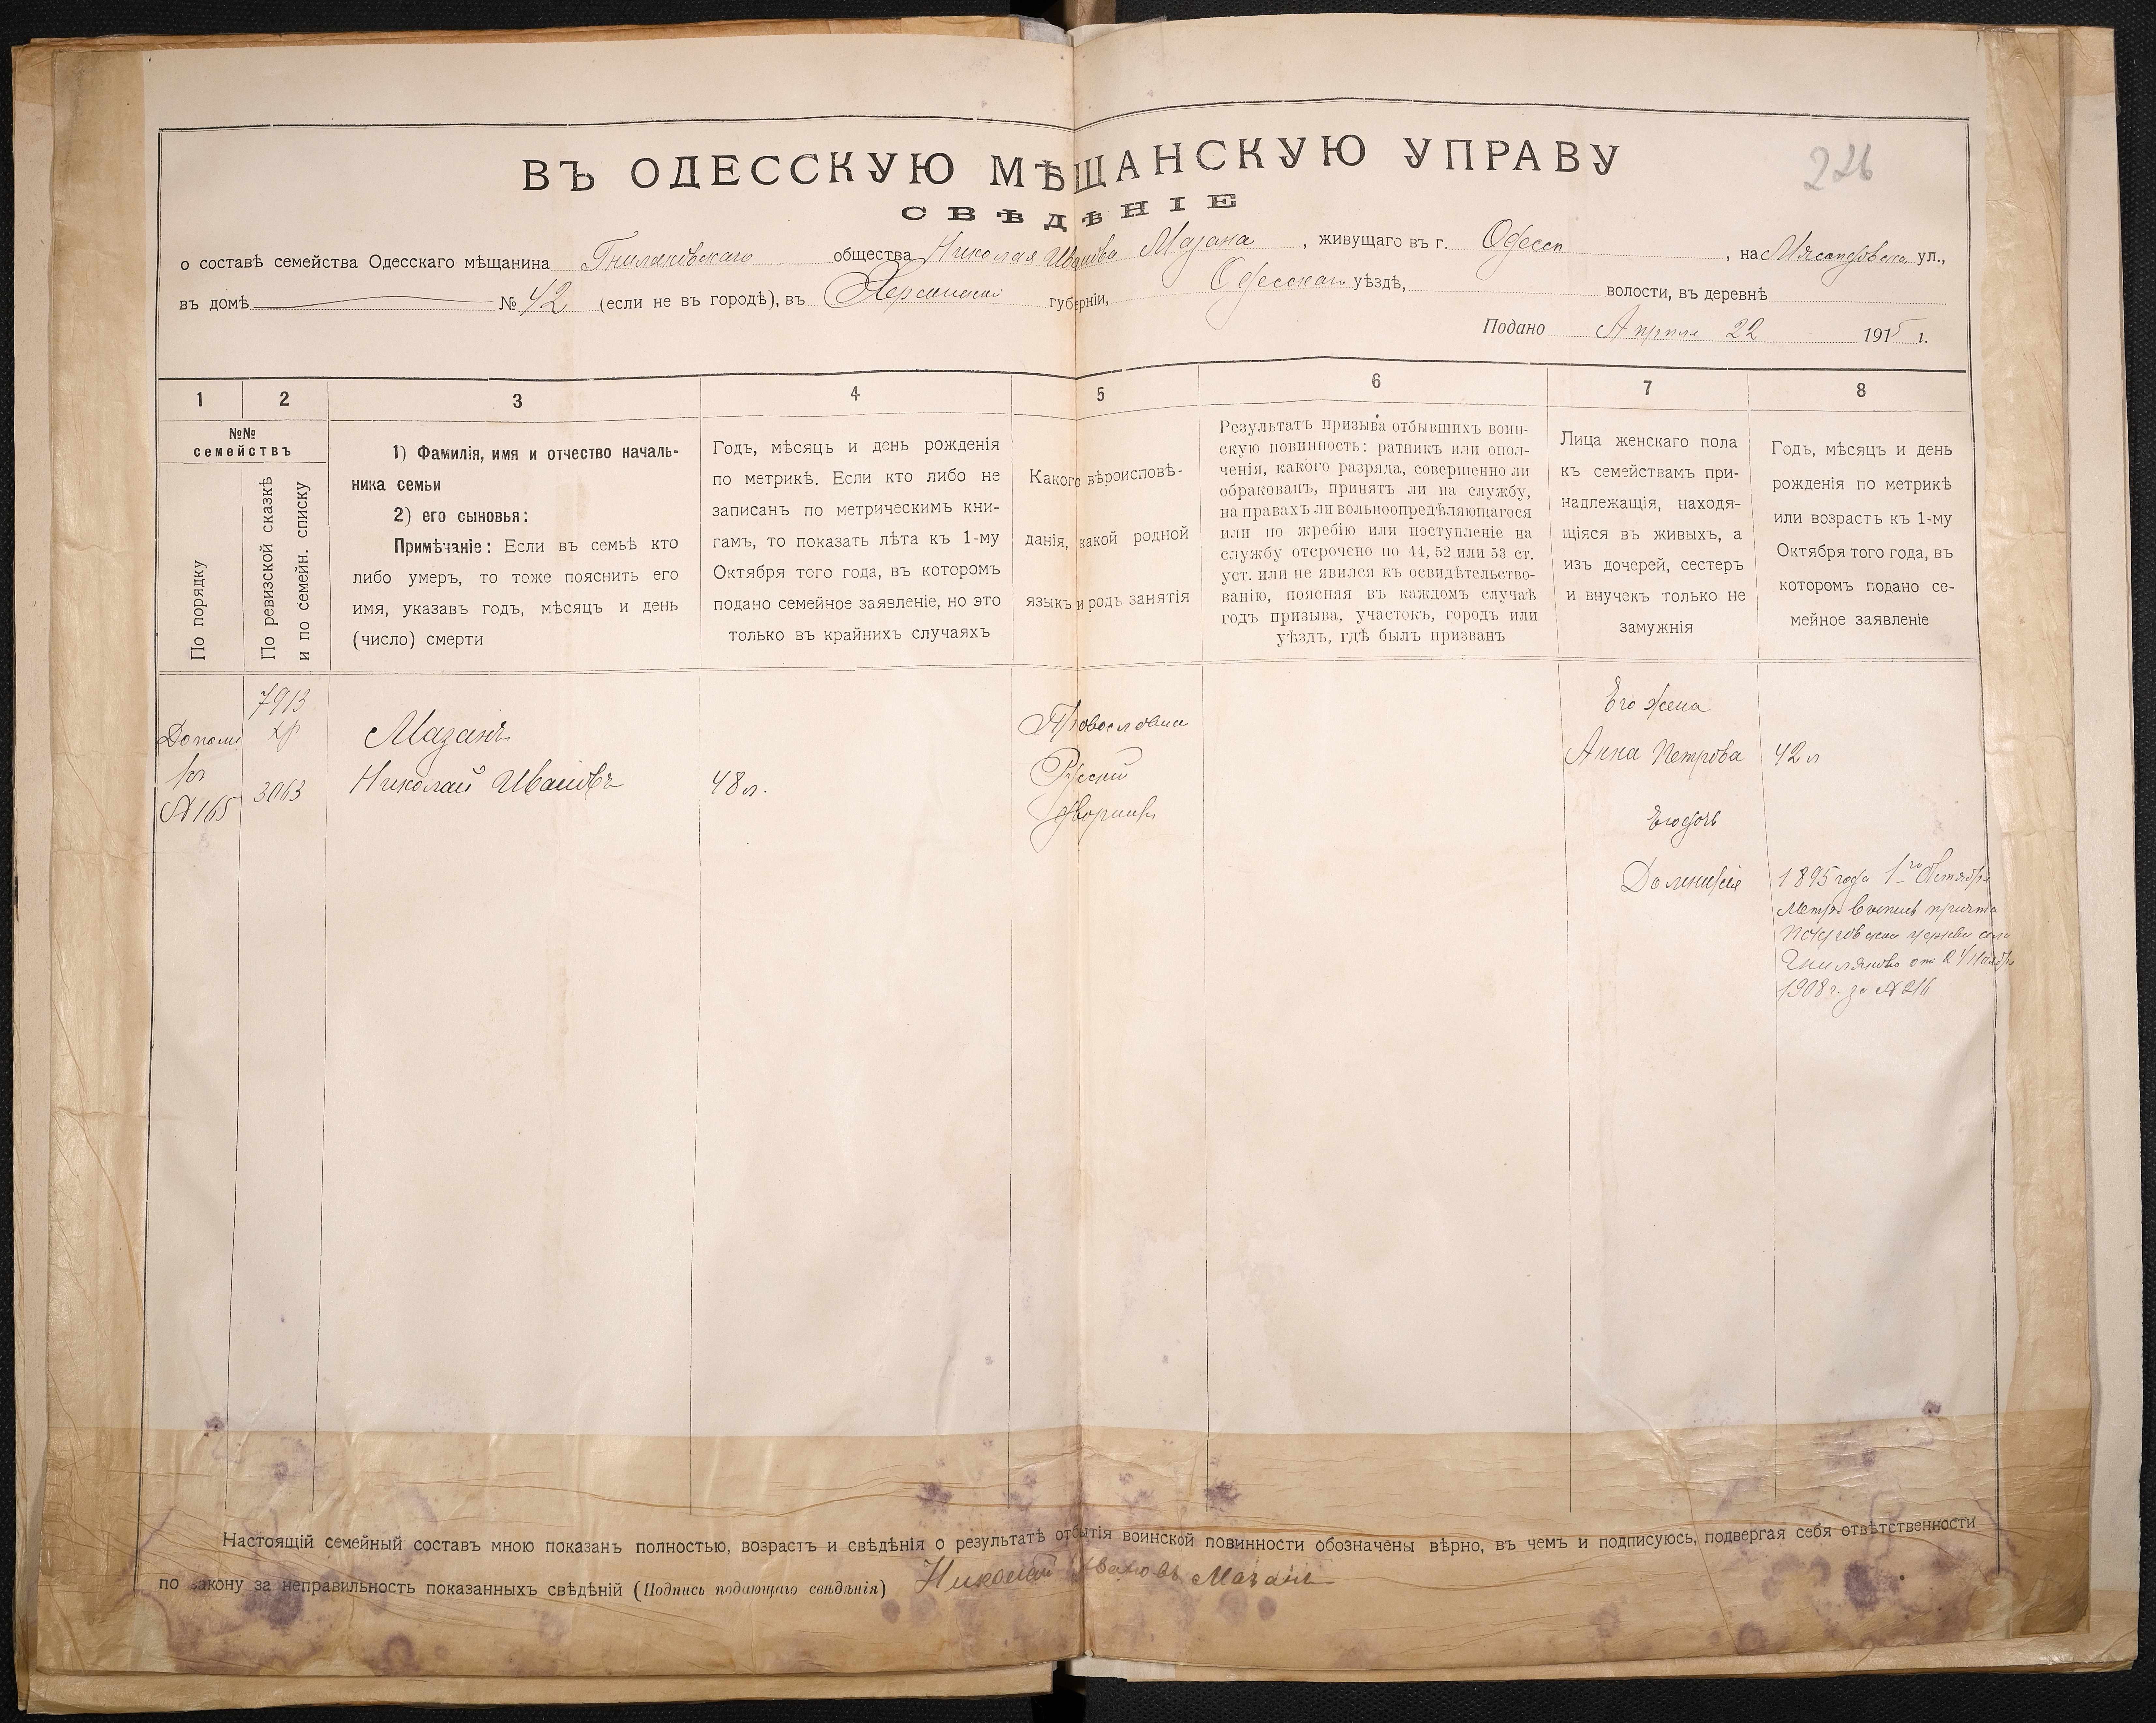 226
ВЪ ОДЕССКУЮ МѢЩАНСКУЮ УПРАВУ
СВѢДѢНІЕ
о составѣ семейства Одесскаго мѣщанина Гниляковскаго общества Николая Иванова Мазана, живущаго въ г. Одессѣ, на Мясоѣдовской ул.,
въ домѣ № 42 (если не въ городѣ), въ Херсонской губерніи, Одесскаго уѣздѣ, волости, въ деревнѣ
Подано Апрѣля 22 1915 г.
1 2 3 4 5 6 7 8
№№
семействъ
По порядку
По ревизской сказкѣ
и по семейн. списку
1) Фамилія, имя и отчество началь-
ника семьи
2) его сыновья:
Примѣчаніе: Если въ семьѣ кто
либо умеръ, то тоже пояснить его
имя, указавъ годъ, мѣсяцъ и день
(число) смерти
Годъ, мѣсяцъ и день рожденія
по метрикѣ. Если кто либо не
записанъ по метрическимъ кни-
гамъ, то показать лѣта къ 1-му
Октября того года, въ которомъ
подано семейное заявленіе, но это
только въ крайнихъ случаяхъ
Какого вѣроисповѣ-
данія, какой родной
языкъ и родъ занятія
Результатъ призыва отбывшихъ воин-
скую повинность: ратникъ или опол-
ченія, какого разряда, совершенно ли
обракованъ, принятъ ли на службу,
на правахъ ли вольноопредѣляющагося
или по жребію или поступленіе на
службу отсрочено по 44, 52 или 53 ст.
уст. или не явился къ освидѣтельство-
ванію, поясняя въ каждомъ случаѣ
годъ призыва, участокъ, городъ или
уѣздъ, гдѣ былъ призванъ
Лица женскаго пола
къ семействамъ при-
надлежащія, находя-
щіяся въ живыхъ, а
изъ дочерей, сестеръ
и внучекъ только не
замужнія
Годъ, мѣсяцъ и день
рожденія по метрикѣ
или возрастъ къ 1-му
Октября того года, въ
которомъ подано се-
мейное заявленіе
Дополн
№ 165
7913
3063
Мазанъ
Николай Ивановъ
48 л.
Православна
Русскій
дворникъ
Его жена
Анна Петрова
42 л
Его дочь
Домникія
1895 года 1го Октября
Метр. выпись причта
Покровской церкви села
Гниляково отъ 24 Ноября
1908 г. за № 216
Настоящій семейный составъ мною показанъ полностью, возрастъ и свѣдѣнія о результатѣ отбытія воинской повинности обозначены вѣрно, въ чемъ и подписуюсь, подвергая себя отвѣтственности
по закону за неправильность показанныхъ свѣдѣній (Подпись подающаго свѣдѣнія) Николай Ивановъ Мазанъ